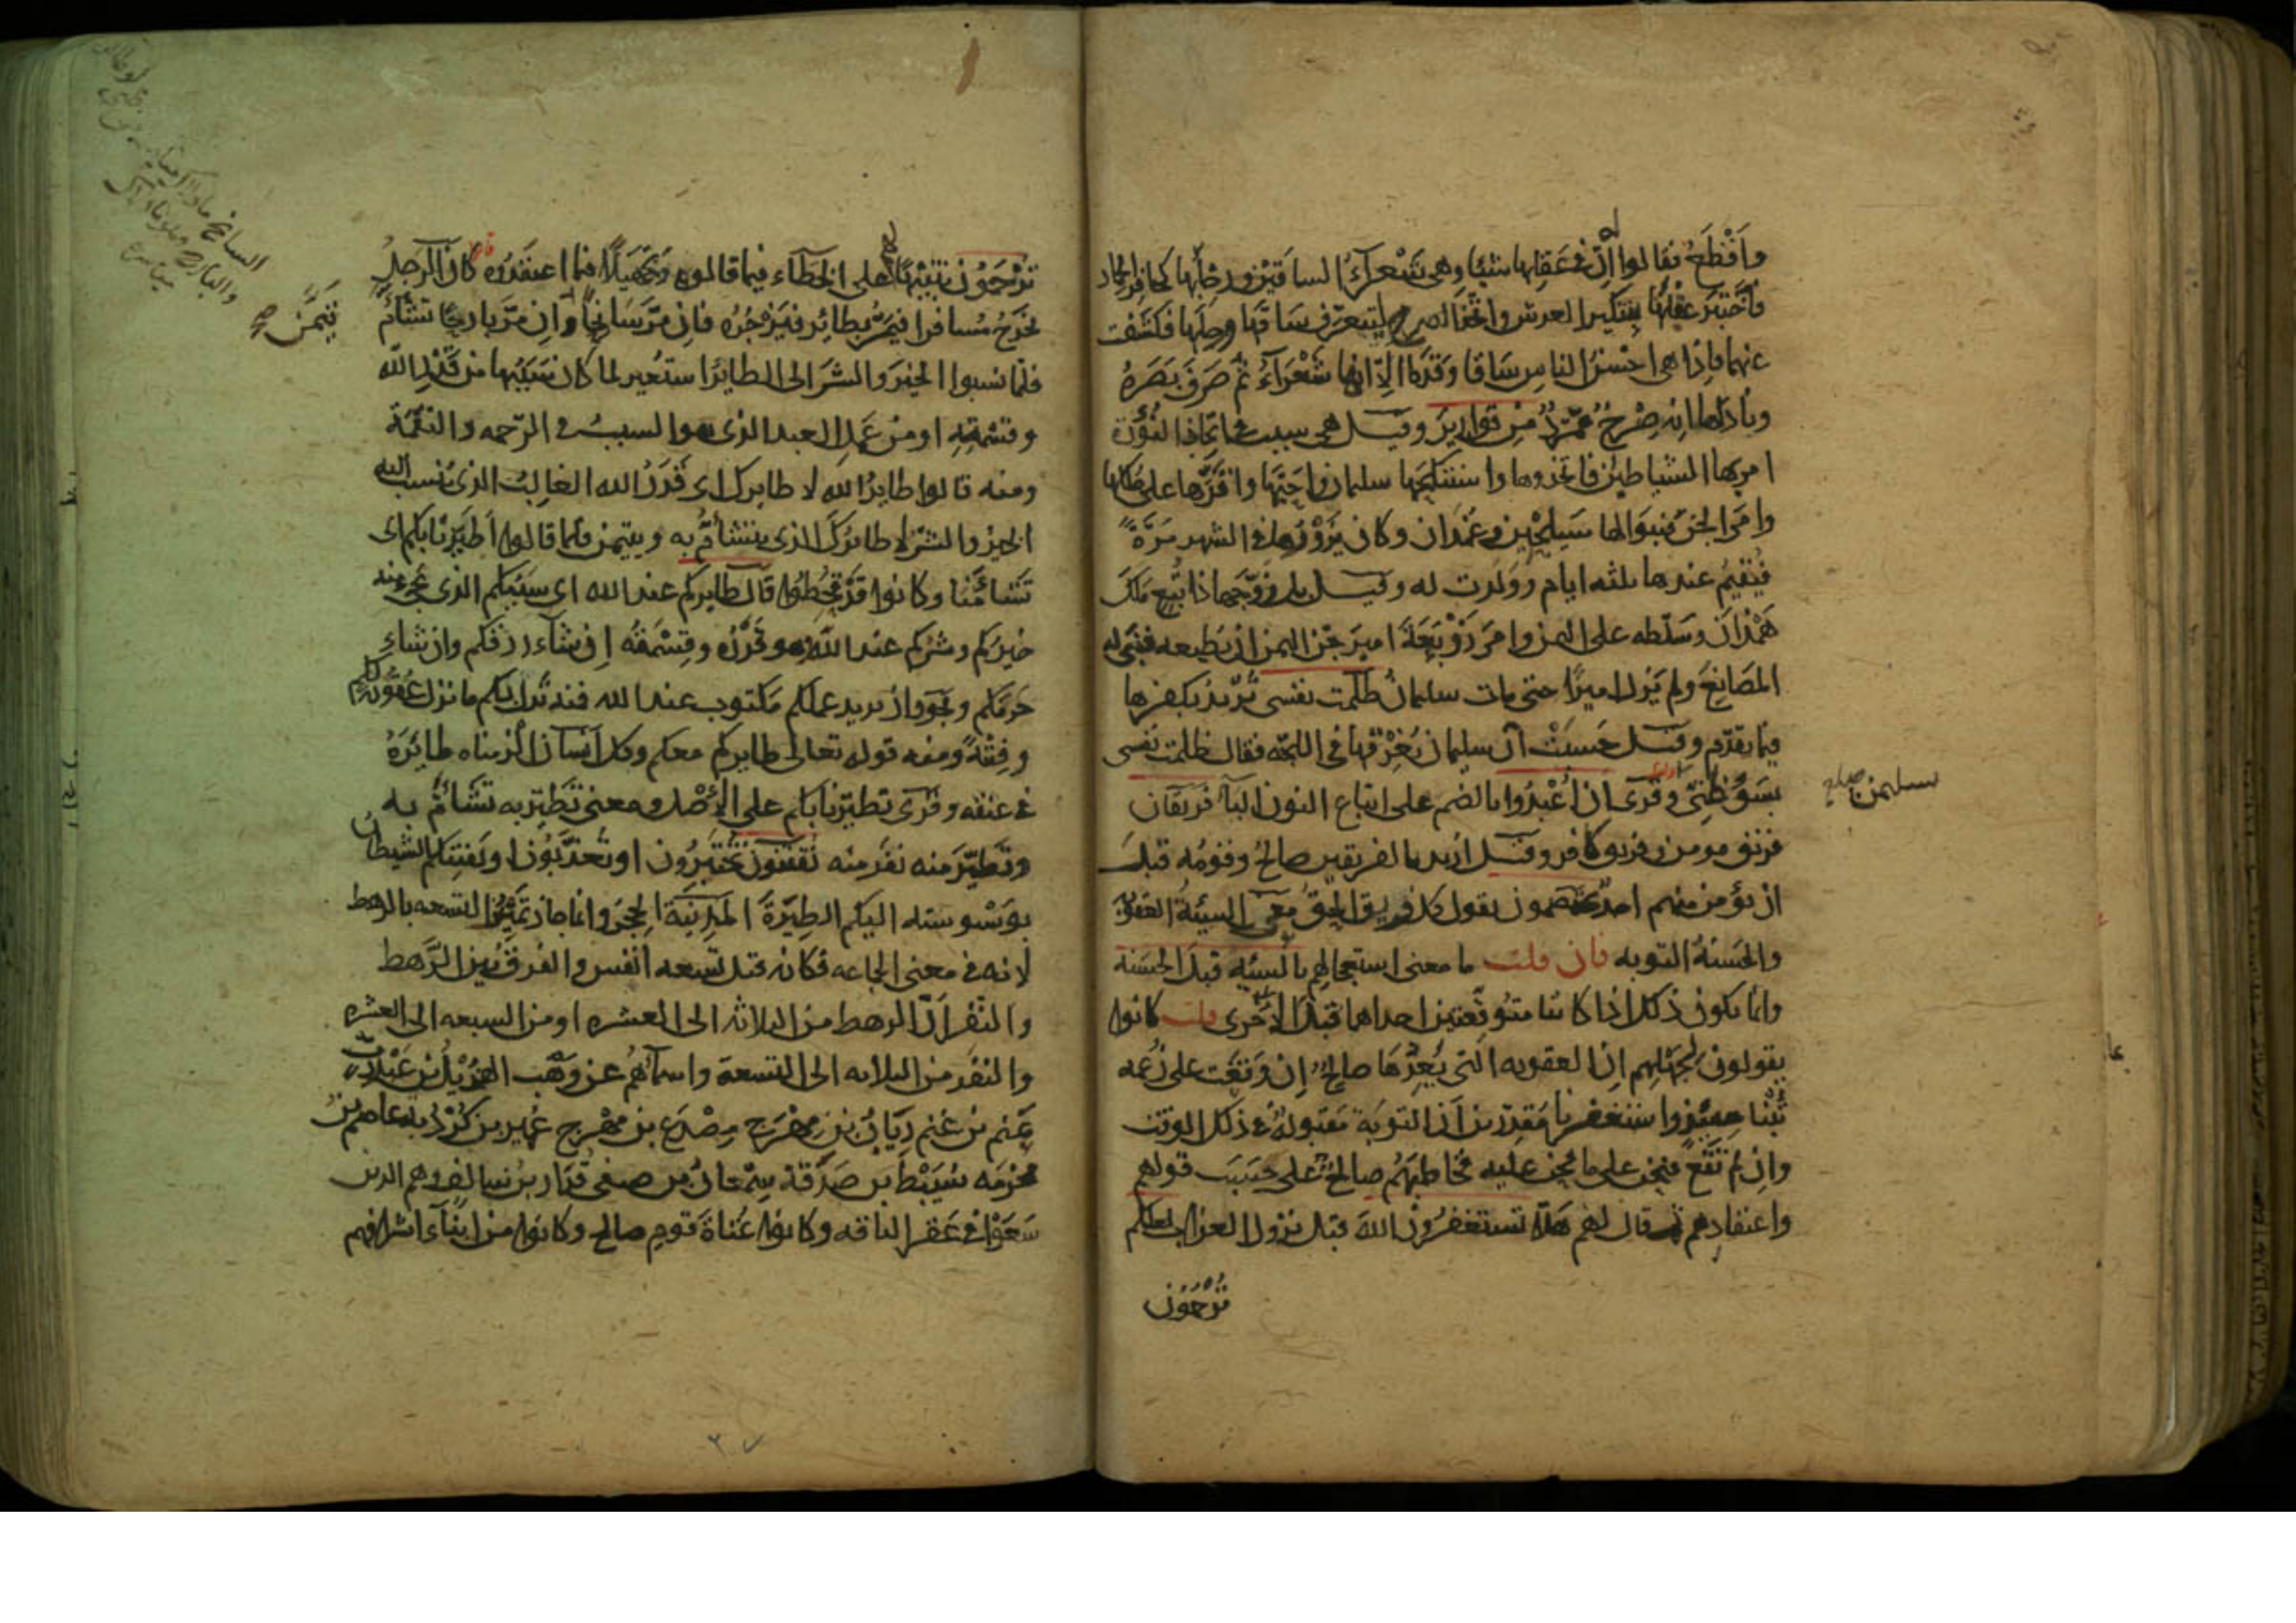 وأفظع فقالوا له إن في عقلها شيئا وهي شعراء الساقين ورجلها كحافر الحمار
فاختبر عقلها بتنكير العرش واتخذ الصرح ليتعرف ساقها ورجلها فكشفت
عنهما فاذا هي احسن الناس ساقا وقدما الا انها شعراء ثم صرف بصره
وناداها انه صرح ممرد من قوارير وقيل هي سبب في اتخاذ النورة
امر بها الشياطين فاتخذوها واستنكحها سليمان واحبها واقرها على ملكها
وامر الجن فبنوا لها سيلحين وغمدان وكان يزورها في الشهر مرة
فيقيم عندها ثلثه ايام وولدت له وقيل بل زوجها ذا تبع ملك
همدان وسلطه على اليمن وامر زوبعة امير جن اليمن ان يطيعه فبنى له
المصانع ولم يزل اميرا حتى مات سليمان ظلمت نفسي تريد بكفرها
فيما تقدم وقيل حسبت ان سليمان يغرقها في اللجة فقال ظلمت نفسي
بسوء ظني وقرئ ان اعبدوا بالضم على اتباع النون الباء فريقان
سليمن صح
فريق مومن وفريق كافر وقيل اريد بالفريقين صالح وقومه قبل
ان يؤمن منهم احد يختصمون يقول كل فريق الحق معي السيئة العقوبة
والحسنة التوبه فان قلت ما معنى استعجالهم بالسيئه قبل الحسنة
وانما يكون ذلك اذا كانتا متوقعتين احداهما قبل الاخرى قلت كانوا
يقولون لجهلهم ان العقوبه التي يعدها صالح ان وقعت على زعمه
تبنا حينئذ واستغفرنا مقدرين ان التوبة مقبولة في ذلك الوقت
وان لم تقع فنحن على ما نحن عليه فخاطبهم صالح على حسب قولهم
واعتقادهم ثم قال لهم هلا تستغفرون الله قبل نزول العذاب لعلكم
ترحمون
ترحمون تنبيها لهم على الخطاء فيما قالوه وتجهيلا فيما اعتقدوه كان الرجل
يخرج مسافرا فيمر بطائر فيزجره فان مر سانحا وان مر بارحا تشاءم
تيمن صح
فلما نسبوا الخير والشر الى الطائر استعير لما كان سببهما من قدر الله
وقسمته او من عمل العبد الذي هو السبب في الرحمه والنقمة
ومنه قالوا طاير الله لا طايرك اي قدر الله الغالب الذي ينسب اليه
الخير والشر لا طائرك الذي يتشاءم به ويتيمن فلما قالوا اطيرنا بكم اي
تشاءمنا وكانوا قد قحطوا قال طايركم عند الله اي سببكم الذي يجيء منه
خيركم وشركم عند الله وهو قدره وقسمته ان شاء رزقكم وان شاء
حرمكم ويجوز ان يريد عملكم مكتوب عند الله فمنه نزل بكم ما نزل عقوبة لكم
وفتنة ومنه قوله تعالى طايركم معكم وكل انسان الزمناه طائره
في عنقه وقرئ تطيرنا بكم على الاصل ومعنى تطير به تشاءم به
وتطير منه نفر منه تفتنون تختبرون او تعذبون او يفتنكم الشيطان
بوسوسته اليكم الطيرة المدينة الحجر وانما جاز تمييز التسعه بالرهط
لانه في معنى الجماعه فكانه قيل تسعه انفس والفرق بين الرهط
والنفر ان الرهط من الثلاثه الى العشره او من السبعه الى العشره
والنفر من الثلاثه الى التسعة واسماؤهم عن وهب الهذيل بن عبد رب
غنم بن غنم رياب بن مهرج مصدع بن مهرج عمير بن كردبه عاصم بن
مخرمه سبيط بن صدقة سمعان بن صفي قدار بن سالف وهم الذين
سعوا في عقر الناقه وكانوا عتاة قوم صالح وكانوا من ابناء اشرافهم